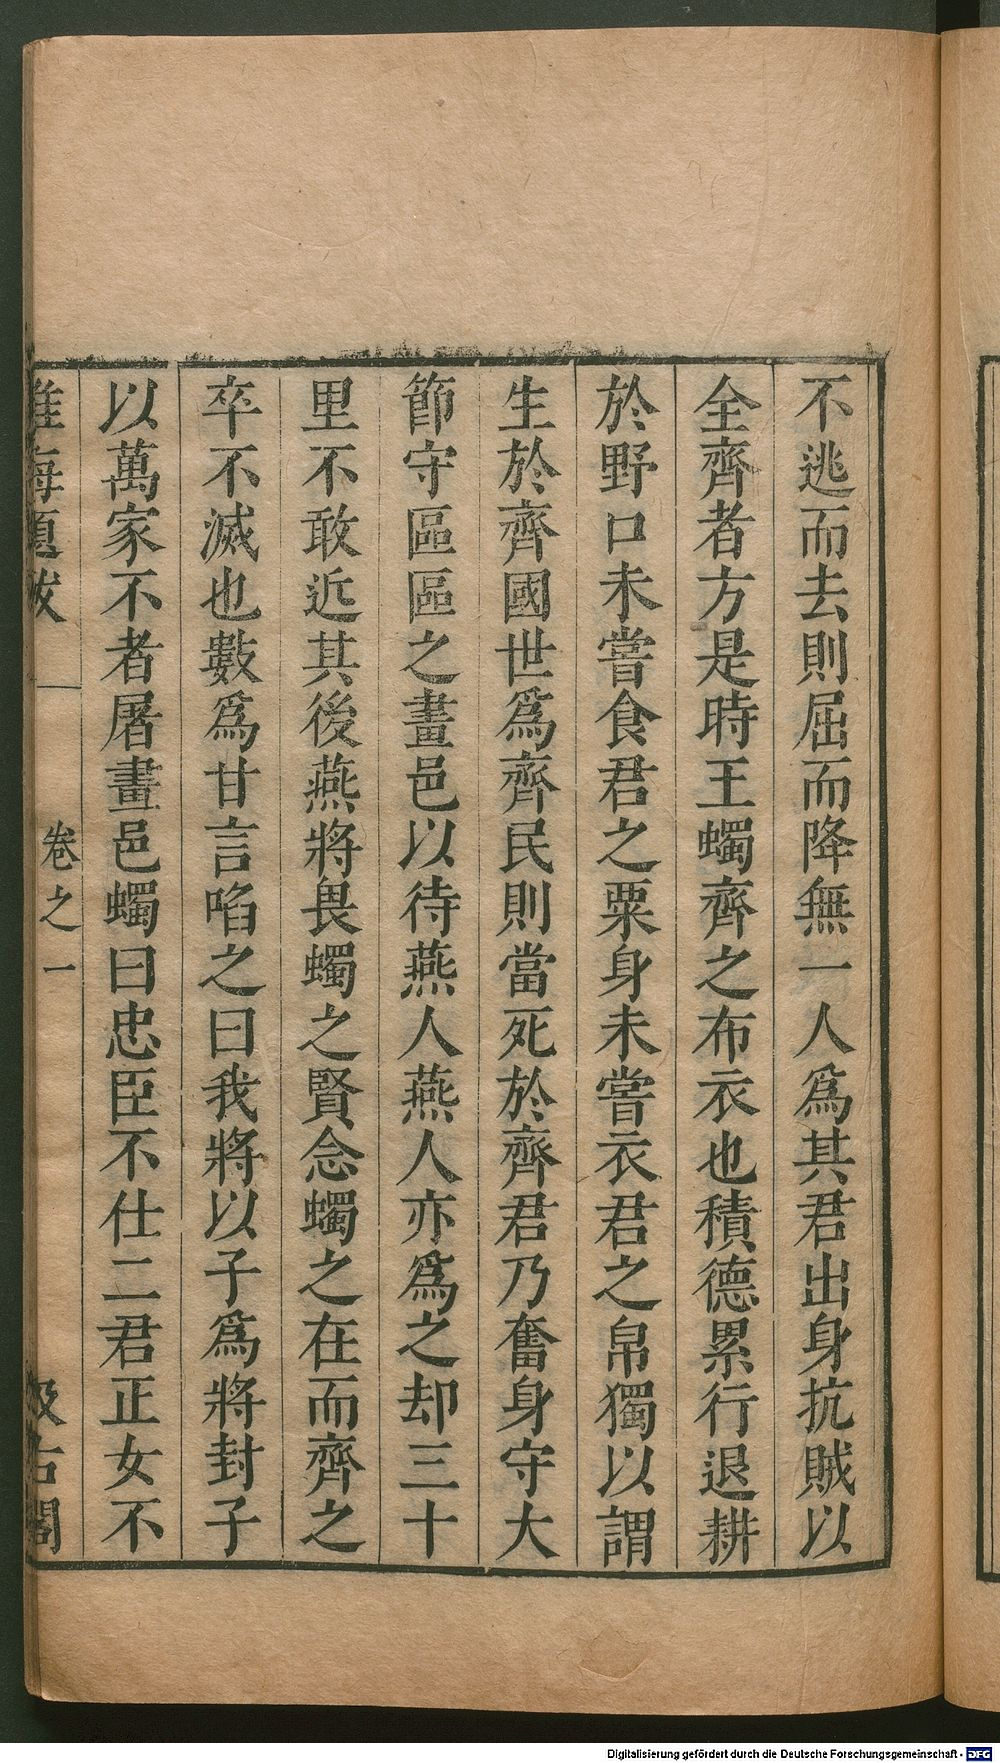 不逃而去則屈而降無一人爲其君出身抗賊以
全齊者方是時王蠋齊之布衣也積德累行退耕
於野口未嘗食君之粟身未嘗衣君之帛獨以謂
生於齊國世爲齊民則當死於齊君乃奮身守大
節守區區之畫邑以待燕人燕人亦爲之却三十
里不敢近其後燕將畏蠋之賢念蠋之在而齊之
卒不滅也數爲甘言啗之曰我將以子爲將封子
以萬家不者屠畫邑蠋曰忠臣不仕二君正女不
淮海題跋 卷之一 汲古閣
Digitalisierung gefördert durch die Deutsche Forschungsgemeinschaft - DFG